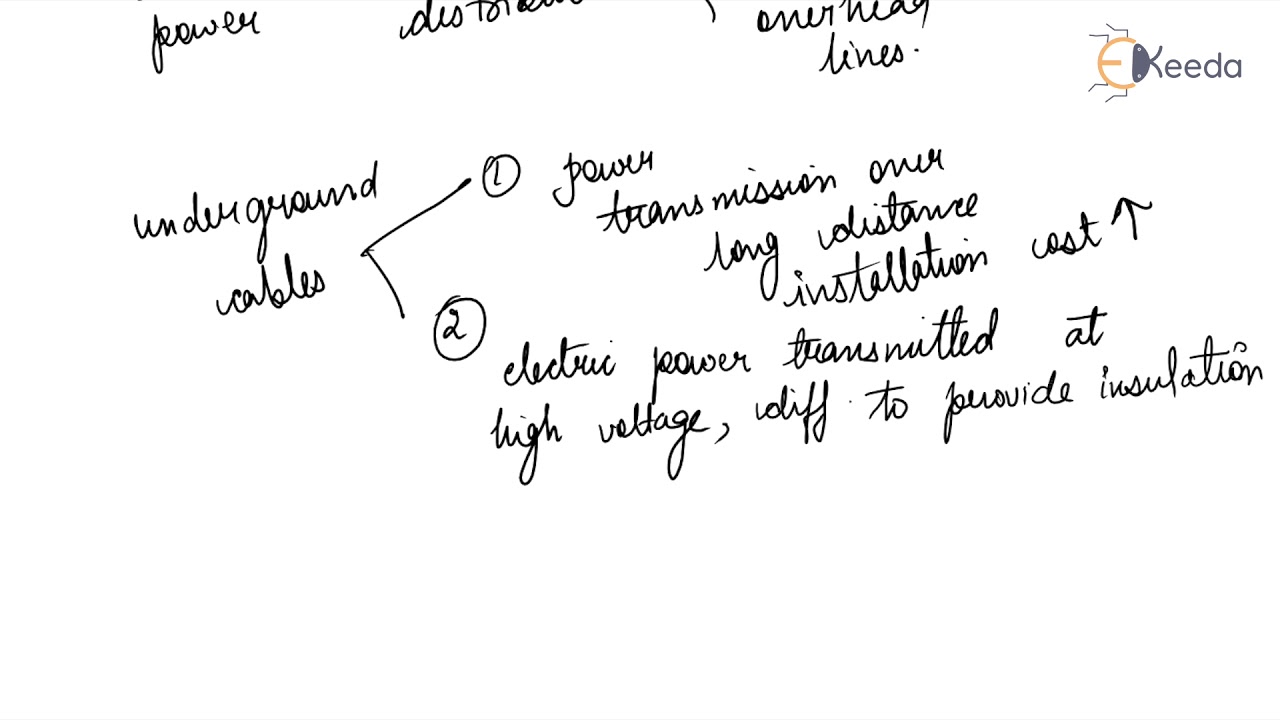 power
lines.
EKeeda
underground
cables
① power
transmission over
long distance
installation cost ↑
② electric power transmitted at
high voltage, diff. to provide insulation